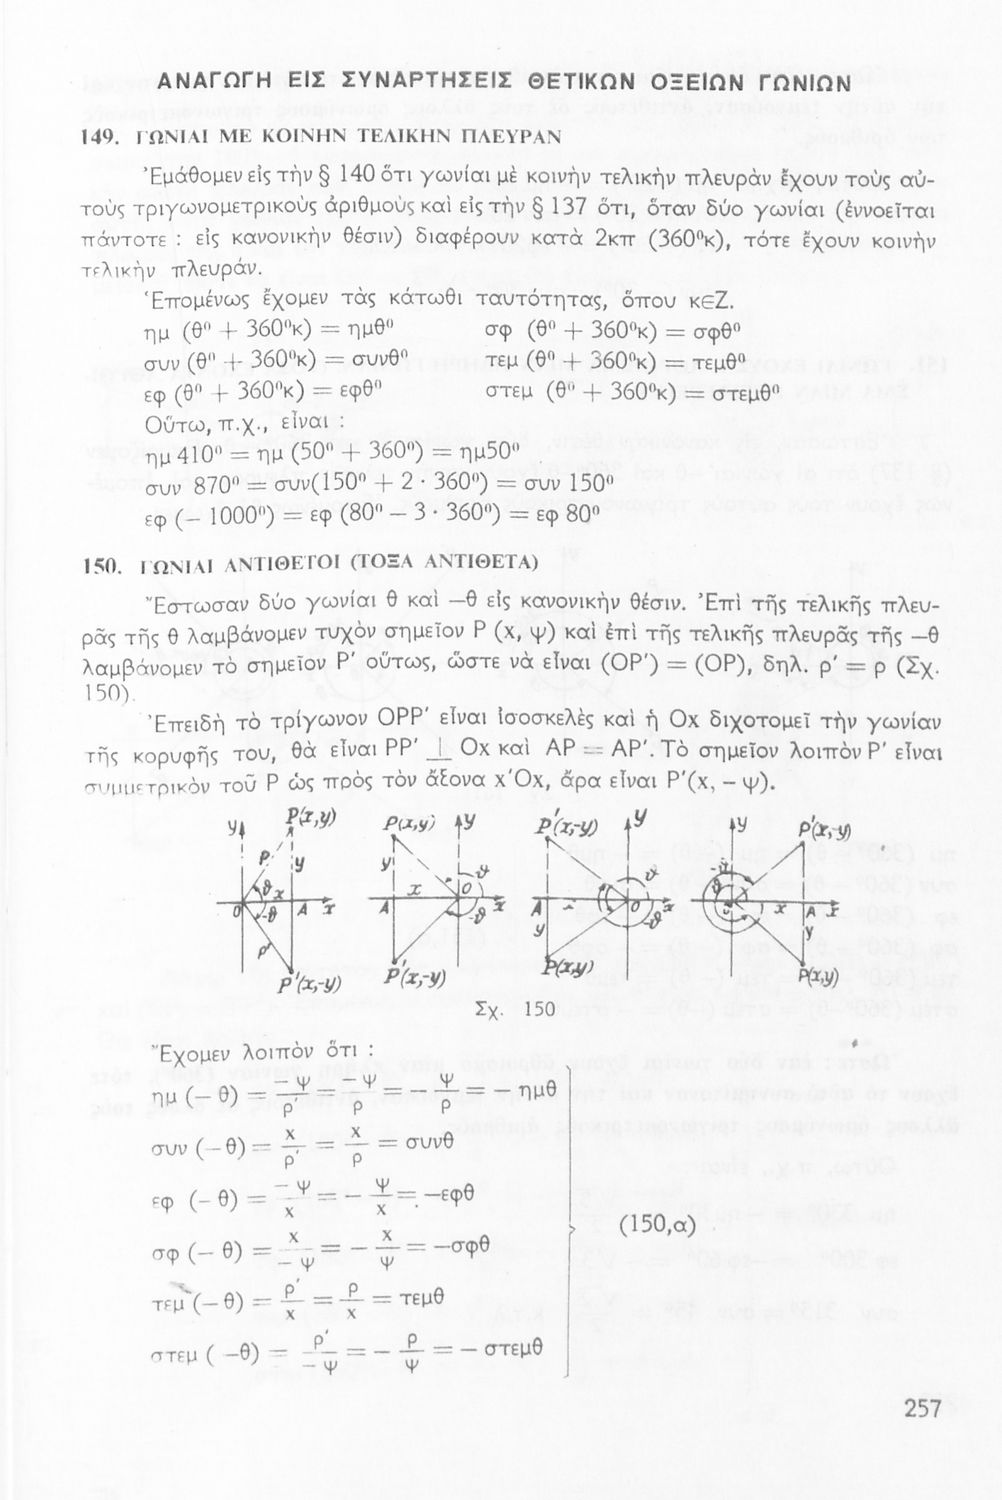 ΑΝΑΓΩΓΗ ΕΙΣ ΣΥΝΑΡΤΗΣΕΙΣ ΘΕΤΙΚΩΝ ΟΞΕΙΩΝ ΓΩΝΙΩΝ
149. ΓΩΝΙΑΙ ΜΕ ΚΟΙΝΗΝ ΤΕΛΙΚΗΝ ΠΛΕΥΡΑΝ
Ἐμάθομεν εἰς τὴν § 140 ὅτι γωνίαι μὲ κοινὴν τελικὴν πλευρὰν ἔχουν τοὺς αὐ-
τοὺς τριγωνομετρικοὺς ἀριθμοὺς καὶ εἰς τὴν § 137 ὅτι, ὅταν δύο γωνίαι (ἐννοεῖται
πάντοτε : εἰς κανονικὴν θέσιν) διαφέρουν κατὰ 2κπ (360⁰κ), τότε ἔχουν κοινὴν
τελικὴν πλευράν.
Ἑπομένως ἔχομεν τὰς κάτωθι ταυτότητας, ὅπου κ∈Ζ.
ημ (θ⁰ + 360⁰κ) = ημθ⁰ σφ (θ⁰ + 360⁰κ) = σφθ⁰
συν (θ⁰ + 360⁰κ) = συνθ⁰ τεμ (θ⁰ + 360⁰κ) = τεμθ⁰
εφ (θ⁰ + 360⁰κ) = εφθ⁰ στεμ (θ⁰ + 360⁰κ) = στεμθ⁰
Οὕτω, π.χ., εἶναι :
ημ 410⁰ = ημ (50⁰ + 360⁰) = ημ50⁰
συν 870⁰ = συν(150⁰ + 2 · 360⁰) = συν 150⁰
εφ (– 1000⁰) = εφ (80⁰ – 3 · 360⁰) = εφ 80⁰
150. ΓΩΝΙΑΙ ΑΝΤΙΘΕΤΟΙ (ΤΟΞΑ ΑΝΤΙΘΕΤΑ)
Ἔστωσαν δύο γωνίαι θ καὶ –θ εἰς κανονικὴν θέσιν. Ἐπὶ τῆς τελικῆς πλευ-
ρᾶς τῆς θ λαμβάνομεν τυχὸν σημεῖον Ρ (x, ψ) καὶ ἐπὶ τῆς τελικῆς πλευρᾶς τῆς –θ
λαμβάνομεν τὸ σημεῖον Ρ' οὕτως, ὥστε νὰ εἶναι (ΟΡ') = (ΟΡ), δηλ. ρ' = ρ (Σχ.
150).
Ἐπειδὴ τὸ τρίγωνον ΟΡΡ' εἶναι ἰσοσκελὲς καὶ ἡ Οx διχοτομεῖ τὴν γωνίαν
τῆς κορυφῆς του, θὰ εἶναι ΡΡ' ⊥ Οx καὶ ΑΡ = ΑΡ'. Τὸ σημεῖον λοιπὸν Ρ' εἶναι
συμμετρικὸν τοῦ Ρ ὡς πρὸς τὸν ἄξονα x'Οx, ἄρα εἶναι Ρ'(x, – ψ).
y P(x,y) P(x,y) y P'(x,-y) y y P'(x,-y)
ρ y y ϑ ϑ ϑ
ϑ x x O
O -ϑ A x A -ϑ x A x O -ϑ x x A x
ρ' y y
P'(x,-y) P'(x,-y) P(x,y) P(x,y)
Σχ. 150
Ἔχομεν λοιπὸν ὅτι :
ημ (– θ) = – ψ / ρ' = – ψ / ρ = – ψ / ρ = – ημθ
συν (– θ) = x / ρ' = x / ρ = συνθ
εφ (– θ) = – ψ / x = – ψ / x = –εφθ
σφ (– θ) = x / – ψ = – x / ψ = –σφθ
(150,α)
τεμ (– θ) = ρ' / x = ρ / x = τεμθ
στεμ ( –θ) = ρ' / – ψ = – ρ / ψ = – στεμθ
257